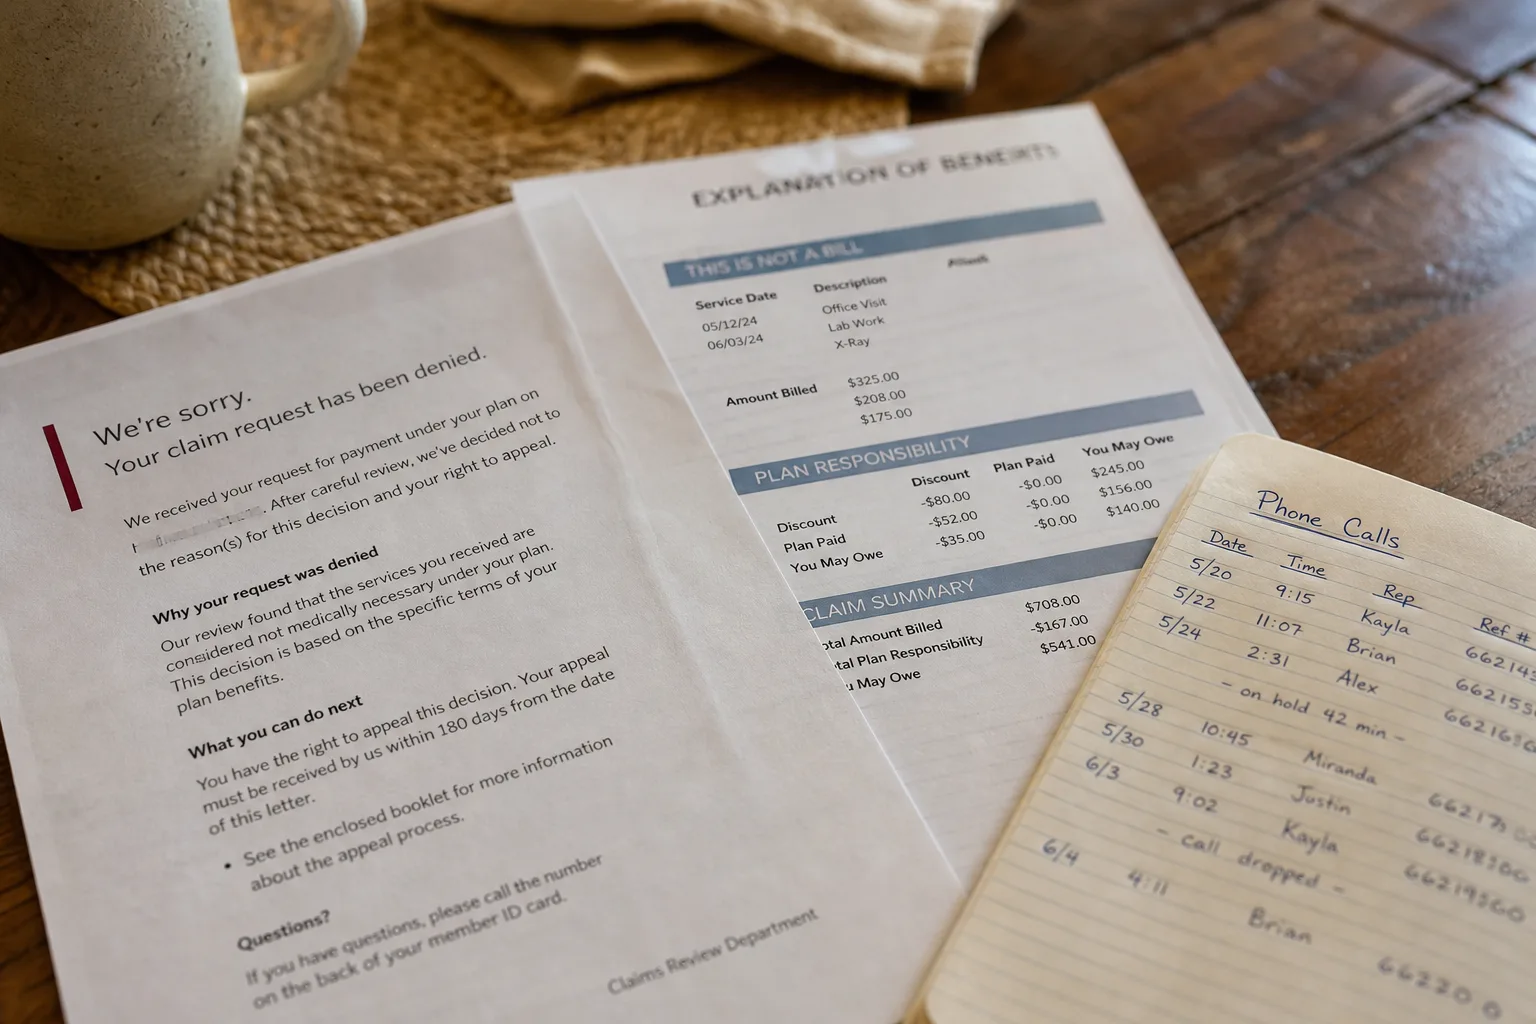 We're sorry.
Your claim request has been denied.
We received your request for payment under your plan on
. After careful review, we've decided not to
the reason(s) for this decision and your right to appeal.
Why your request was denied
Our review found that the services you received are
considered not medically necessary under your plan.
This decision is based on the specific terms of your
plan benefits.
What you can do next
You have the right to appeal this decision. Your appeal
must be received by us within 180 days from the date
of this letter.
• See the enclosed booklet for more information
about the appeal process.
Questions?
If you have questions, please call the number
on the back of your member ID card.
Claims Review Department
EXPLANATION OF BENEFITS
THIS IS NOT A BILL
Service Date Description
05/12/24 Office Visit
06/03/24 Lab Work
X-Ray
Amount Billed $325.00
$208.00
$175.00
PLAN RESPONSIBILITY
Discount Plan Paid You May Owe
Discount -$80.00 -$0.00 $245.00
Plan Paid -$52.00 -$0.00 $156.00
You May Owe -$35.00 -$0.00 $140.00
CLAIM SUMMARY
otal Amount Billed $708.00
tal Plan Responsibility -$167.00
u May Owe $541.00
Phone Calls
Date Time Rep Ref #
5/20 9:15 Kayla
5/22 11:07 Brian
5/24 2:31 Alex
- on hold 42 min -
5/28 10:45 Miranda
5/30 1:23 Justin
6/3 9:02 Kayla
- call dropped -
6/4 4:11 Brian